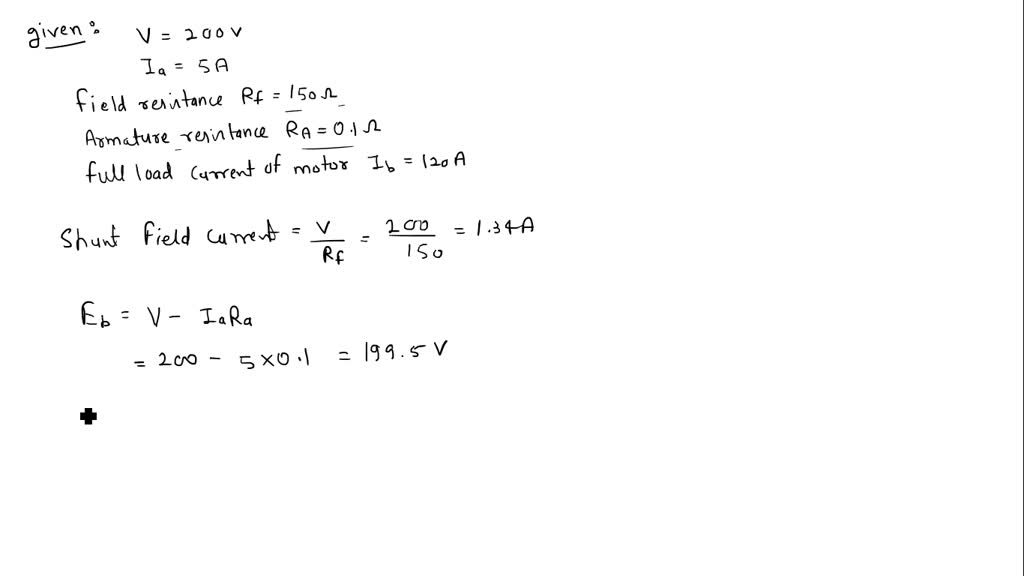 given:
V = 200V
Ia = 5A
field resistance Rf = 150Ω
Armature resistance RA = 0.1Ω
full load current of motor Ib = 120A
Shunt field current = V/Rf = 200/150 = 1.34A
Eb = V - IaRa
= 200 - 5×0.1 = 199.5 V